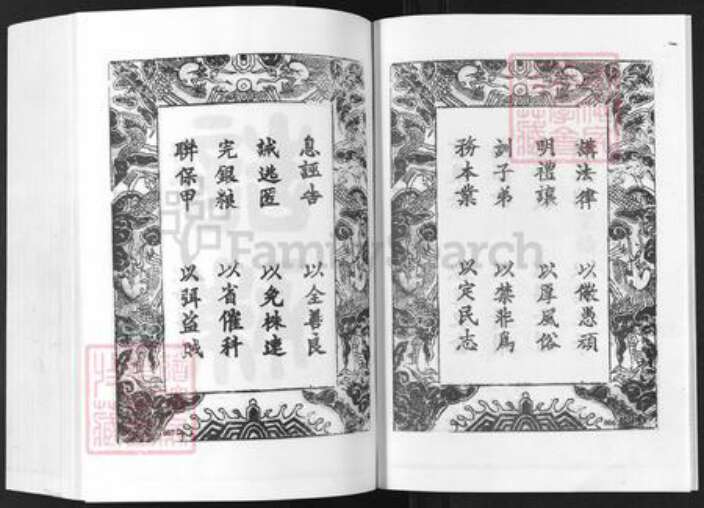 講法律 以儆愚頑
明禮讓 以厚風俗
務本業 以定民志
訓子弟 以禁非為
息誣告 以全善良
誡逃匿 以免株連
完銀糧 以省催科
聯保甲 以弭盜賊
FamilySearch